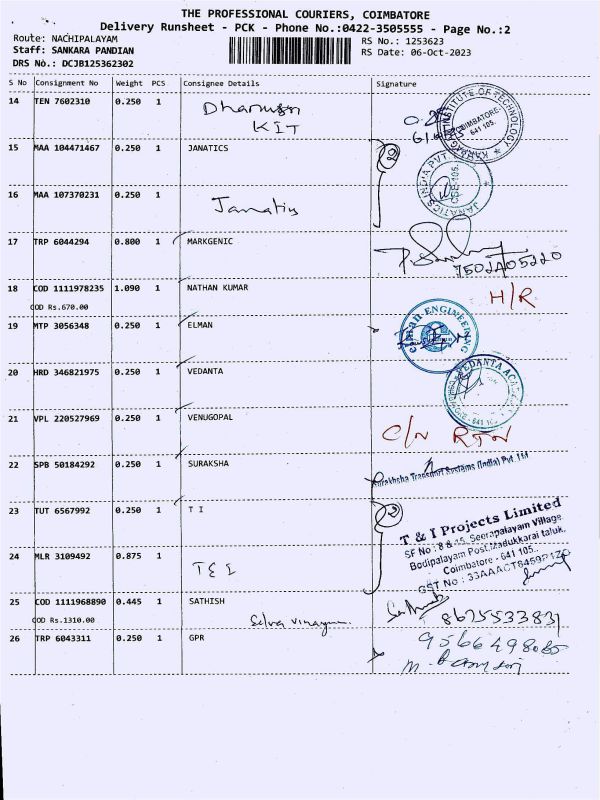 THE PROFESSIONAL COURIERS, COIMBATORE
Delivery Runsheet - PCK - Phone No.:0422-3505555 - Page No.:2
Route: NACHIPALAYAM
RS No.: 1253623
Staff: SANKARA PANDIAN
RS Date: 06-Oct-2023
DRS No.: DCJB125362302
S No Consignment No Weight PCS Consignee Details Signature
14 TEN 7602310 0.250 1
KIT
KARPAGAM INSTITUTE OF TECHNOLOGY
COIMBATORE.
641 105.
15 MAA 104471467 0.250 1 JANATICS
JANATICS INDIA PVT
CBE-105.
16 MAA 107370231 0.250 1
Janatics
17 TRP 6044294 0.800 1 MARKGENIC
7502405220
18 COD 1111978235 1.090 1 NATHAN KUMAR H/R
COD Rs.670.00
19 MTP 3056348 0.250 1 ELMAN
elman ENGINEERING
20 HRD 346821975 0.250 1 VEDANTA
VEDANTA ACADEMY
21 VPL 220527969 0.250 1 VENUGOPAL C/N RTN
22 SPB 50184292 0.250 1 SURAKSHA
Surakhsha Transport Systems (India) Pvt. Ltd
23 TUT 6567992 0.250 1 T I
T & I Projects Limited
SF No : 8 & 15, Seerapalayam Village,
Bodipalayam Post, Madukkarai taluk,
Coimbatore - 641 105.
24 MLR 3109492 0.875 1
T & I
25 COD 1111968890 0.445 1 SATHISH
8675533831
COD Rs.1310.00
Selva vinayam
26 TRP 6043311 0.250 1 GPR